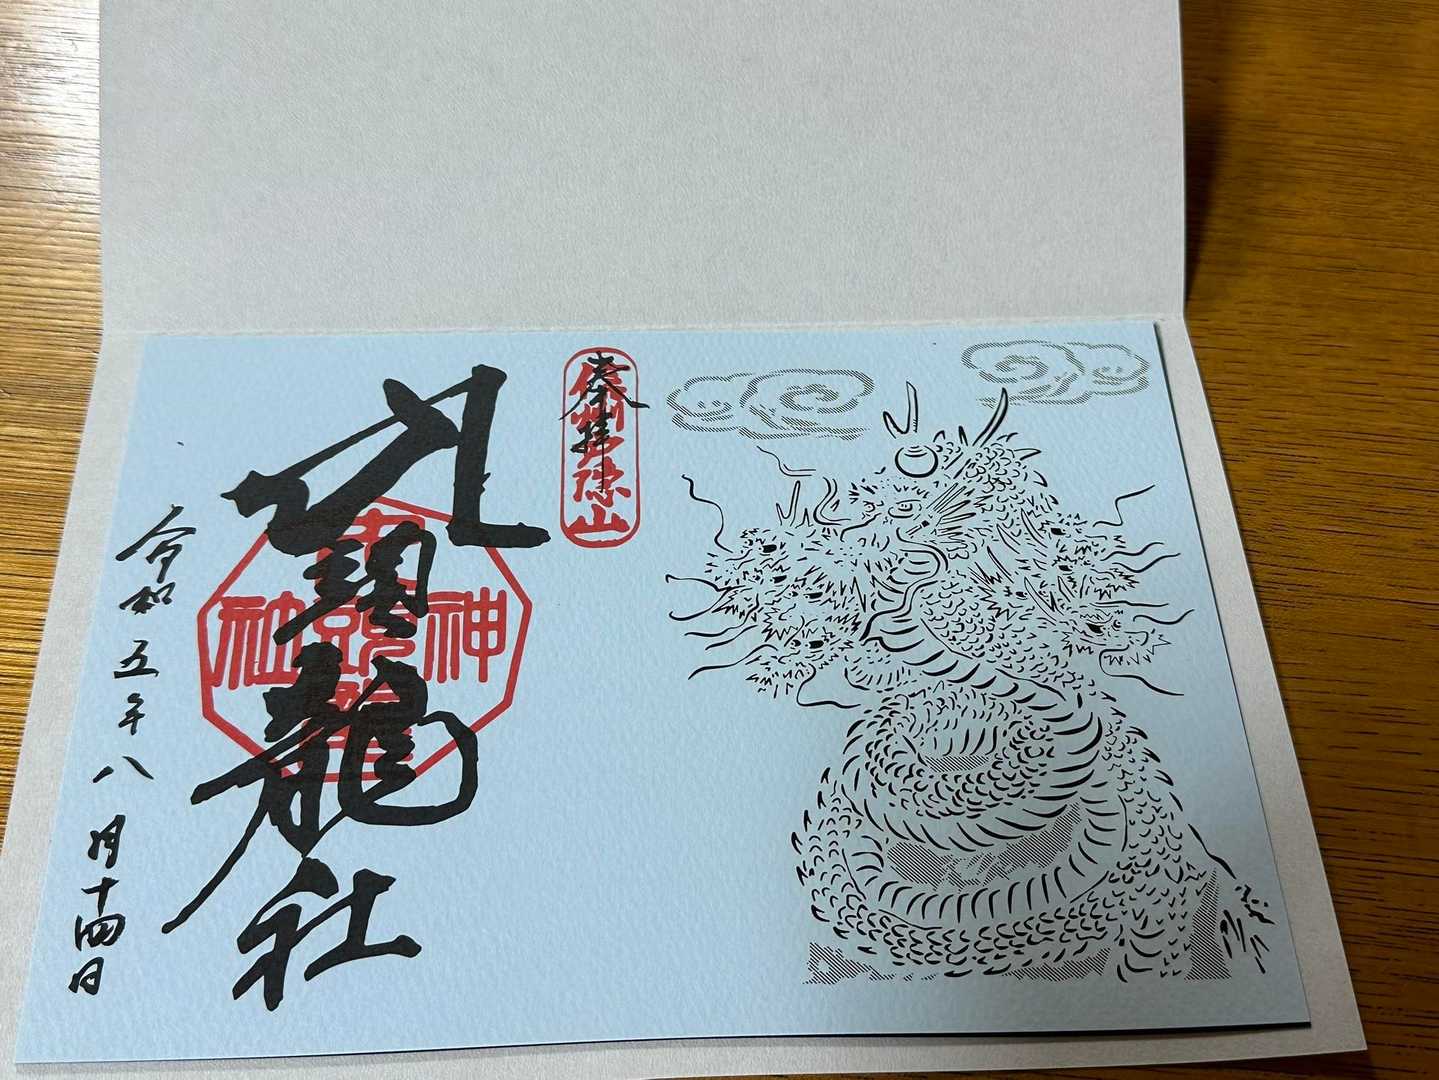 奉拝
信州戸隠山
九頭龍社
神社
令和五年八月十四日